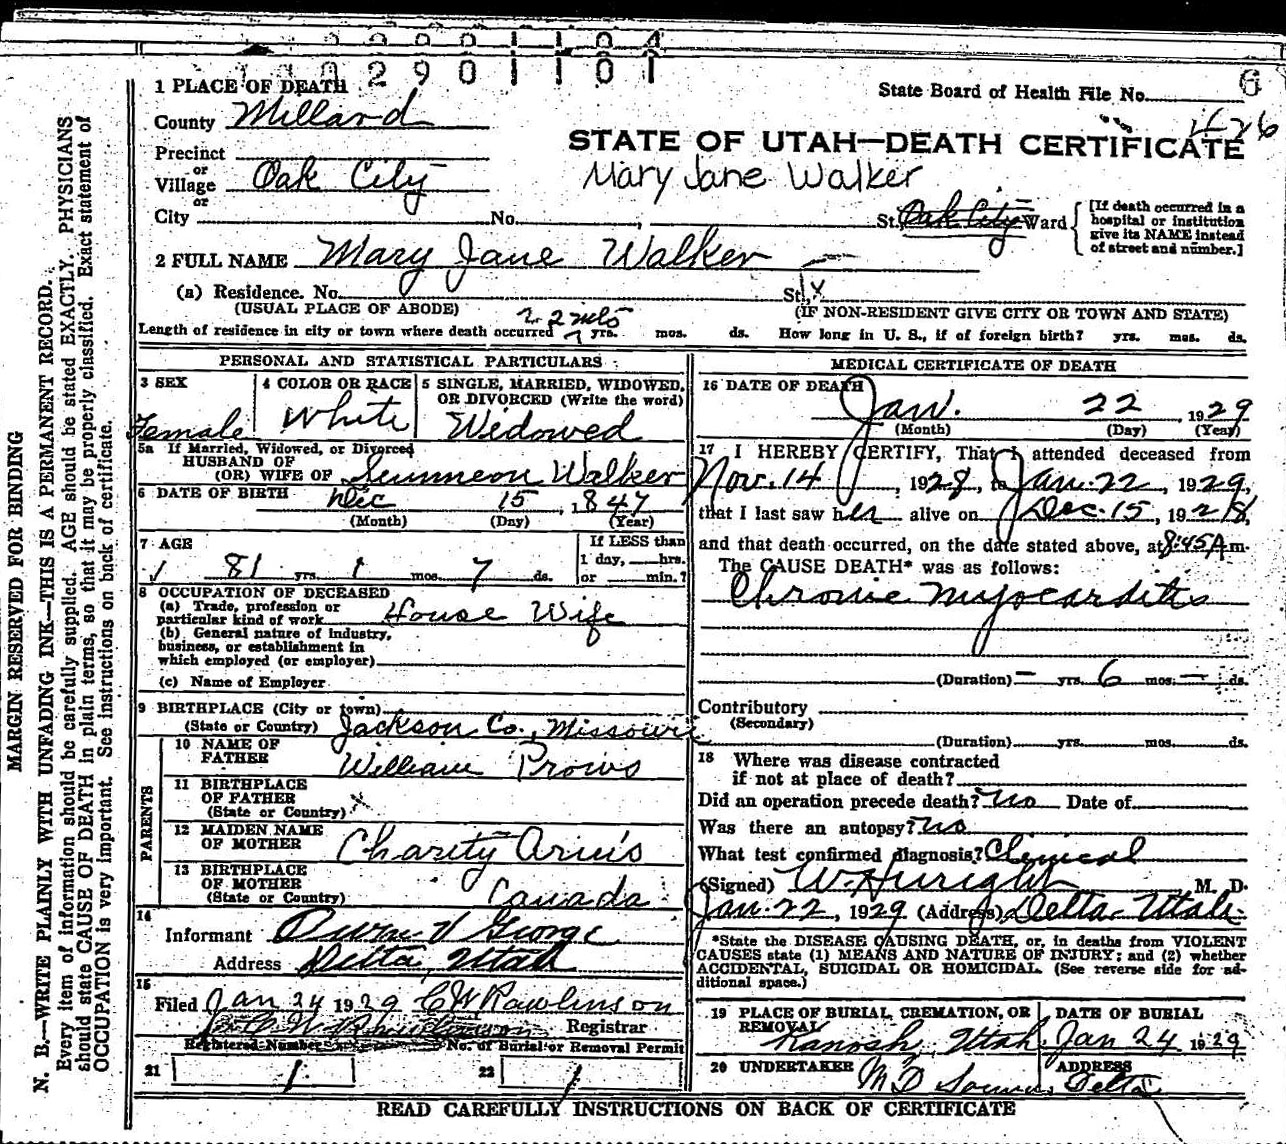 2901101
6
1 PLACE OF DEATH
State Board of Health File No.
County Millard
STATE OF UTAH—DEATH CERTIFICATE
Precinct
or
Village Oak City
Mary Jane Walker
or
City No. , St., Oak City Ward
[If death occurred in a hospital or institution give its NAME instead of street and number.]
2 FULL NAME Mary Jane Walker
(a) Residence. No. St.,
(USUAL PLACE OF ABODE) (IF NON-RESIDENT GIVE CITY OR TOWN AND STATE)
Length of residence in city or town where death occurred yrs. mos. ds. How long in U. S., if of foreign birth? yrs. mos. ds.
PERSONAL AND STATISTICAL PARTICULARS
3 SEX
Female
4 COLOR OR RACE
White
5 SINGLE, MARRIED, WIDOWED,
OR DIVORCED (Write the word)
Widowed
5a If Married, Widowed, or Divorced
HUSBAND OF
(OR) WIFE OF Walker
6 DATE OF BIRTH Dec 15, 1847
(Month) (Day) (Year)
7 AGE
81 yrs. 1 mos. 7 ds.
If LESS than
1 day, hrs.
or min.?
8 OCCUPATION OF DECEASED
(a) Trade, profession or
particular kind of work House Wife
(b) General nature of industry,
business, or establishment in
which employed (or employer)
(c) Name of Employer
9 BIRTHPLACE (City or town)
(State or Country) Jackson Co., Missouri
PARENTS
10 NAME OF
FATHER William Prows
11 BIRTHPLACE
OF FATHER
(State or Country) x
12 MAIDEN NAME
OF MOTHER Charity
13 BIRTHPLACE
OF MOTHER
(State or Country) Canada
14
Informant George
Address Delta, Utah
15
Filed Jan 24 1929 C W Rawlinson
Registrar
Registered Number No. of Burial or Removal Permit
21 1 22 1
MEDICAL CERTIFICATE OF DEATH
16 DATE OF DEATH
Jan. 22 1929
(Month) (Day) (Year)
17 I HEREBY CERTIFY, That I attended deceased from
Nov. 14, 1928, to Jan. 22, 1929,
that I last saw her alive on Dec. 15, 1928,
and that death occurred, on the date stated above, at 8:45 A m.
The CAUSE DEATH* was as follows:
Chronic Myocarditis
(Duration) — yrs. 6 mos. — ds.
Contributory
(Secondary)
(Duration) yrs. mos. ds.
18 Where was disease contracted
if not at place of death?
Did an operation precede death? No Date of
Was there an autopsy? No
What test confirmed diagnosis? Clinical
(Signed) M. D.
Jan. 22, 1929 (Address) Delta Utah.
*State the DISEASE CAUSING DEATH, or, in deaths from VIOLENT
CAUSES state (1) MEANS AND NATURE OF INJURY; and (2) whether
ACCIDENTAL, SUICIDAL OR HOMICIDAL. (See reverse side for ad-
ditional space.)
19 PLACE OF BURIAL, CREMATION, OR
REMOVAL
Kanosh, Utah.
DATE OF BURIAL
Jan 24 1929
20 UNDERTAKER
M D
ADDRESS
Delta
READ CAREFULLY INSTRUCTIONS ON BACK OF CERTIFICATE
MARGIN RESERVED FOR BINDING
N. B.—WRITE PLAINLY WITH UNFADING INK—THIS IS A PERMANENT RECORD.
Every item of information should be carefully supplied. AGE should be stated EXACTLY. PHYSICIANS
should state CAUSE OF DEATH in plain terms, so that it may be properly classified. Exact statement of
OCCUPATION is very important. See instructions on back of certificate.